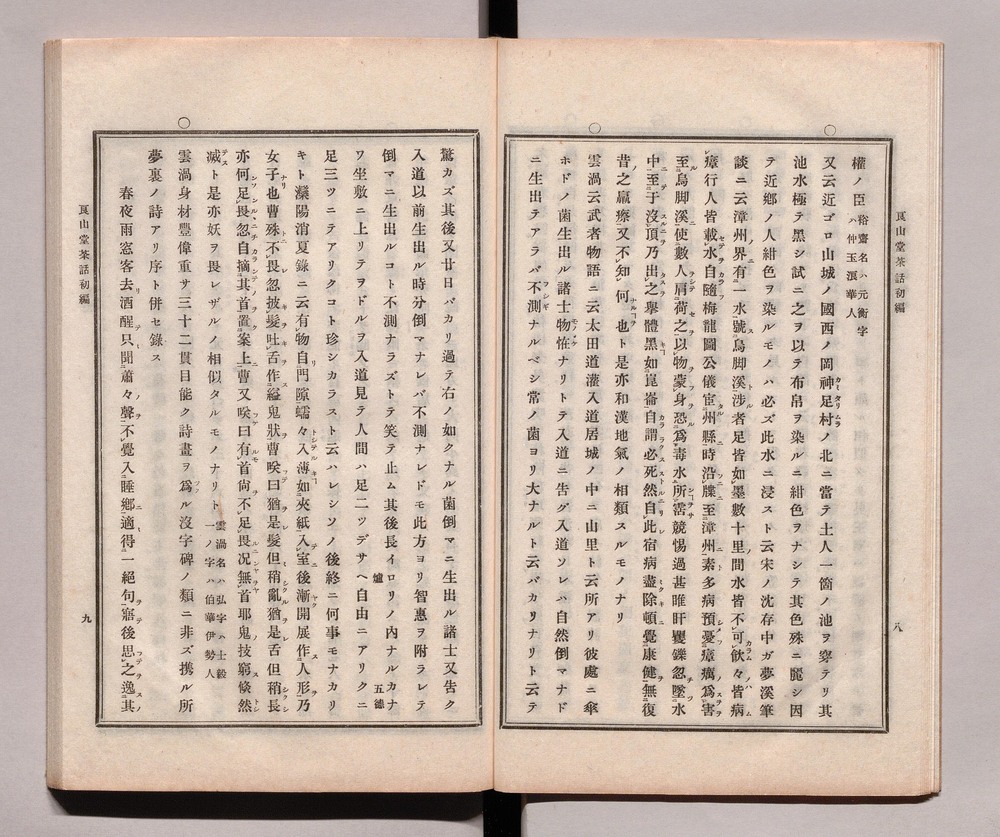 艮山堂茶話初編
八
權ノ臣裕齋名ハ元衡字ハ仲玉溟華人
○又云近ゴロ山城ノ國西ノ岡神足村ノ北ニ當テ土人一箇ノ池ヲ穿テリ其
池水極テ黑シ試ニ之ヲ以テ布帛ヲ染ルニ紺色ヲナシテ其色殊ニ麗シ因
テ近鄕ノ人紺色ヲ染ルモノハ必ズ此水ニ浸スト云宋ノ沈存中ガ夢溪筆
談ニ云漳州界有一水號烏脚溪涉者足皆如墨數十里間水皆不可飮々皆病
瘴行人皆載水自隨梅龍圖公儀宦州縣時沿牒至漳州素多病預憂瘴癘爲害
至烏脚溪使數人肩荷之以物蒙身恐爲毒水所霑競惕過甚睢盱矍鑠忽墜水
中至于沒頂乃出之擧體黑如崑崙自謂必死然自此宿病盡除頓覺康健無復
昔之羸瘵又不知何也ト是亦和漢地氣ノ相類スルモノナリ
○雲渦云武者物語ニ云太田道灌入道居城ノ中ニ山里ト云所アリ彼處ニ傘
ホドノ菌生出ル諸士物恠ナリトテ入道ニ告グ入道ソレハ自然倒マナド
ニ生出テアラバ不測ナルベシ常ノ菌ヨリ大ナルト云バカリナリト云テ
驚カズ其後又廿日バカリ過テ右ノ如クナル菌倒マニ生出ル諸士又告ク
入道以前生出ル時分倒マナレバ不測ナレドモ此方ヨリ智惠ヲ附ラレテ
倒マニ生出ルコト不測ナラズトテ笑テ止ム其後長イロリノ内ナルカナ
爐五德
ワ坐敷ニ上リテヲドルヲ入道見テ人間ハ足二ツデサヘ自由ニアリクニ
足三ツニテアリクコト珍シカラスト云ハレシソノ後終ニ何事モナカリ
キト灤陽消夏錄ニ云有物自門隙蠕々入薄如夾紙入室後漸開展作人形乃
女子也曹殊不畏忽披髮吐舌作縊鬼狀曹咲曰猶是髮但稍亂猶是舌但稍長
亦何足畏忽自摘其首置案上曹又咲曰有首尙不足畏况無首耶鬼技窮倐然
滅ト是亦妖ヲ畏レザルノ相似タルモノナリト雲渦名ハ弘字ハ士毅一ノ字ハ伯華伊勢人
○雲渦身材豐偉重サ三十二貫目能ク詩畫ヲ爲ル沒字碑ノ類ニ非ズ携ル所
夢裏ノ詩アリ序ト併セ錄ス
春夜雨窓客去酒醒只聞蕭々聲不覺入睡鄕適得一絕句寤後思之逸其
艮山堂茶話初編
九